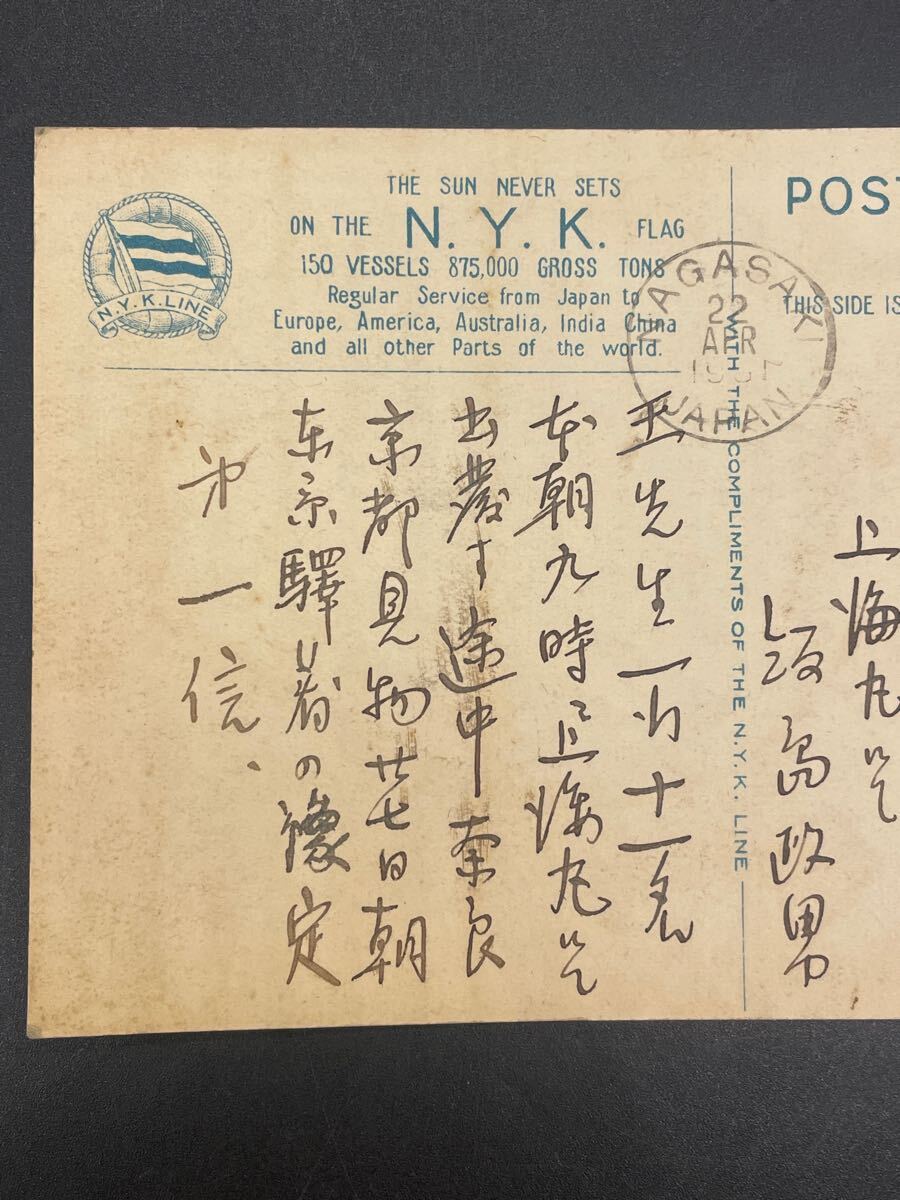 THE SUN NEVER SETS
ON THE N. Y. K. FLAG
150 VESSELS 875,000 GROSS TONS
Regular Service from Japan to
Europe, America, Australia, India China
and all other Parts of the world.
N.Y.K. LINE
POST
THIS SIDE IS
WITH THE COMPLIMENTS OF THE N.Y.K. LINE
NAGASAKI
22
APR
JAPAN
上海丸にて
飯島政男
王先生一行十一名
本朝九時上海丸にて
出發す途中奈良
京都見物廿七日朝
东京驛着の豫定
第一信、